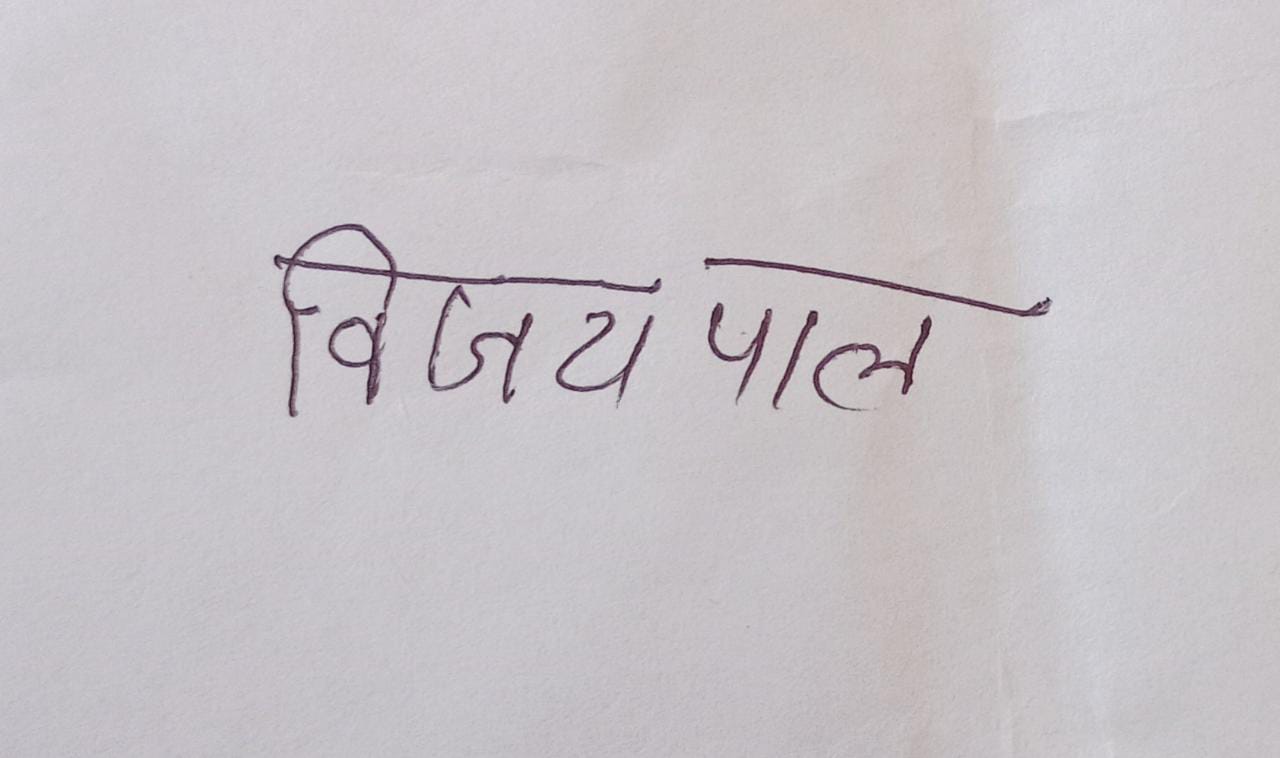 विजय पाल